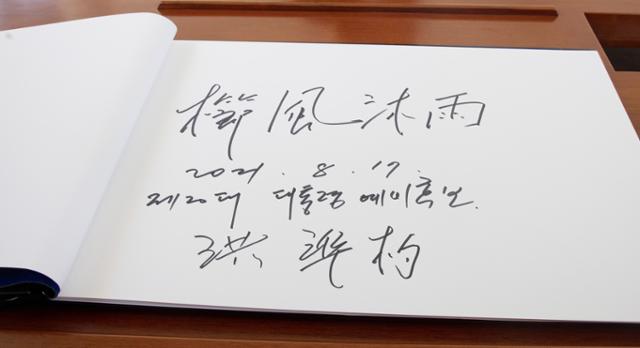 櫛風沐雨
2021. 8. 17.
제20대 대통령 예비후보.
洪 準 杓